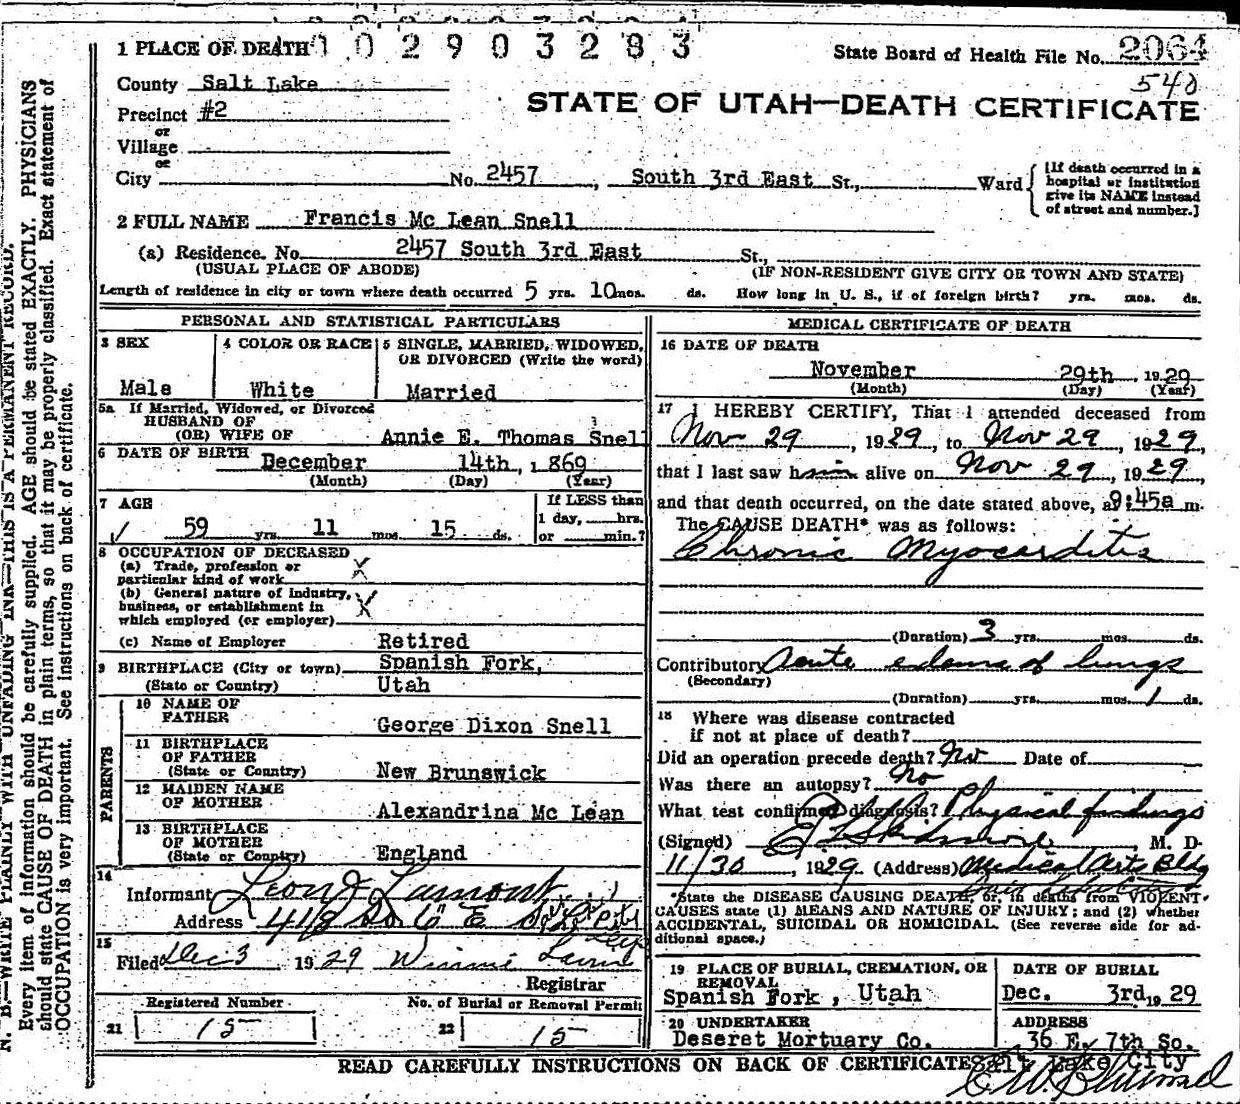 1 PLACE OF DEATH 0 0 2 9 0 3 2 8 3
State Board of Health File No. 2064
County Salt Lake
540
STATE OF UTAH—DEATH CERTIFICATE
Precinct #2
or
Village
or
City No. 2457, South 3rd East St., Ward
[If death occurred in a hospital or institution give its NAME instead of street and number.]
2 FULL NAME Francis Mc Lean Snell
(a) Residence. No. 2457 South 3rd East St.,
(USUAL PLACE OF ABODE) (IF NON-RESIDENT GIVE CITY OR TOWN AND STATE)
Length of residence in city or town where death occurred 5 yrs. 10 mos. ds. How long in U. S., if of foreign birth? yrs. mos. ds.
PERSONAL AND STATISTICAL PARTICULARS
3 SEX
Male
4 COLOR OR RACE
White
5 SINGLE, MARRIED, WIDOWED,
OR DIVORCED (Write the word)
Married
5a If Married, Widowed, or Divorced
HUSBAND OF
(OR) WIFE OF Annie E. Thomas Snell
6 DATE OF BIRTH December 14th, 1869
(Month) (Day) (Year)
7 AGE
59 yrs. 11 mos. 15 ds.
If LESS than
1 day, hrs.
or min.?
8 OCCUPATION OF DECEASED
(a) Trade, profession or
particular kind of work X
(b) General nature of industry,
business, or establishment in
which employed (or employer) X
(c) Name of Employer Retired
9 BIRTHPLACE (City or town) Spanish Fork,
(State or Country) Utah
PARENTS
10 NAME OF
FATHER George Dixon Snell
11 BIRTHPLACE
OF FATHER
(State or Country) New Brunswick
12 MAIDEN NAME
OF MOTHER Alexandrina Mc Lean
13 BIRTHPLACE
OF MOTHER
(State or Country) England
14
Informant Leon J Lamont
Address 418 So 6 E
15
Filed Dec 3 1929 Winnie
Registrar
Registered Number
21 15
No. of Burial or Removal Permit
22 15
MEDICAL CERTIFICATE OF DEATH
16 DATE OF DEATH
November 29th, 1929
(Month) (Day) (Year)
17 I HEREBY CERTIFY, That I attended deceased from
Nov 29, 1929, to Nov 29, 1929,
that I last saw him alive on Nov 29, 1929,
and that death occurred, on the date stated above, at 9:45a m.
The CAUSE DEATH* was as follows:
Chronic Myocarditis
(Duration) 3 yrs. mos. ds.
Contributory Acute edema of lungs
(Secondary)
(Duration) yrs. mos. 1 ds.
18 Where was disease contracted
if not at place of death?
Did an operation precede death? No Date of
Was there an autopsy? No
What test confirmed diagnosis? Physical findings
(Signed) Skidmore M. D.
11/30, 1929. (Address) Medical Arts Bldg
*State the DISEASE CAUSING DEATH, or, in deaths from VIOLENT
CAUSES state (1) MEANS AND NATURE OF INJURY; and (2) whether
ACCIDENTAL, SUICIDAL OR HOMICIDAL. (See reverse side for ad-
ditional space.)
19 PLACE OF BURIAL, CREMATION, OR
REMOVAL
Spanish Fork, Utah
DATE OF BURIAL
Dec. 3rd, 19 29
20 UNDERTAKER
Deseret Mortuary Co.
ADDRESS
36 E. 7th So.
Salt Lake City
READ CAREFULLY INSTRUCTIONS ON BACK OF CERTIFICATE
N. B.—WRITE PLAINLY WITH UNFADING INK—THIS IS A PERMANENT RECORD.
Every item of information should be carefully supplied. AGE should be stated EXACTLY. PHYSICIANS
should state CAUSE OF DEATH in plain terms, so that it may be properly classified. Exact statement of
OCCUPATION is very important. See instructions on back of certificate.